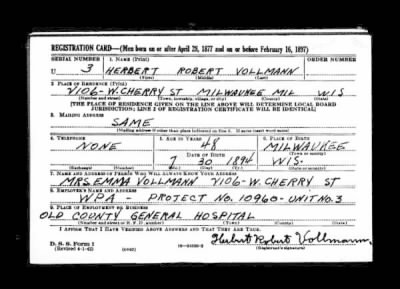 REGISTRATION CARD—(Men born on or after April 28, 1877 and on or before February 16, 1897)
SERIAL NUMBER 1. NAME (Print) ORDER NUMBER
U 3 HERBERT ROBERT VOLLMANN
(First) (Middle) (Last)
2. PLACE OF RESIDENCE (Print)
4106-W. CHERRY ST MILWAUKEE MIL WIS
(Number and street) (Town, township, village, or city) (County) (State)
[THE PLACE OF RESIDENCE GIVEN ON THE LINE ABOVE WILL DETERMINE LOCAL BOARD
JURISDICTION; LINE 2 OF REGISTRATION CERTIFICATE WILL BE IDENTICAL]
3. MAILING ADDRESS
SAME
[Mailing address if other than place indicated on line 2. If same insert word same]
4. TELEPHONE 5. AGE IN YEARS 6. PLACE OF BIRTH
NONE 48 MILWAUKEE
DATE OF BIRTH (Town or county)
7 30 1894 WIS.
(Exchange) (Number) (Mo.) (Day) (Yr.) (State or country)
7. NAME AND ADDRESS OF PERSON WHO WILL ALWAYS KNOW YOUR ADDRESS
MRS EMMA VOLLMANN 4106-W. CHERRY ST
8. EMPLOYER'S NAME AND ADDRESS
WPA - PROJECT No. 10960-UNIT No. 3
9. PLACE OF EMPLOYMENT OR BUSINESS
OLD COUNTY GENERAL HOSPITAL
(Number and street or R. F. D. number) (Town) (County) (State)
I AFFIRM THAT I HAVE VERIFIED ABOVE ANSWERS AND THAT THEY ARE TRUE.
D. S. S. Form 1 Herbert Robert Vollmann
(Revised 4-1-42) (over) (Registrant's signature)